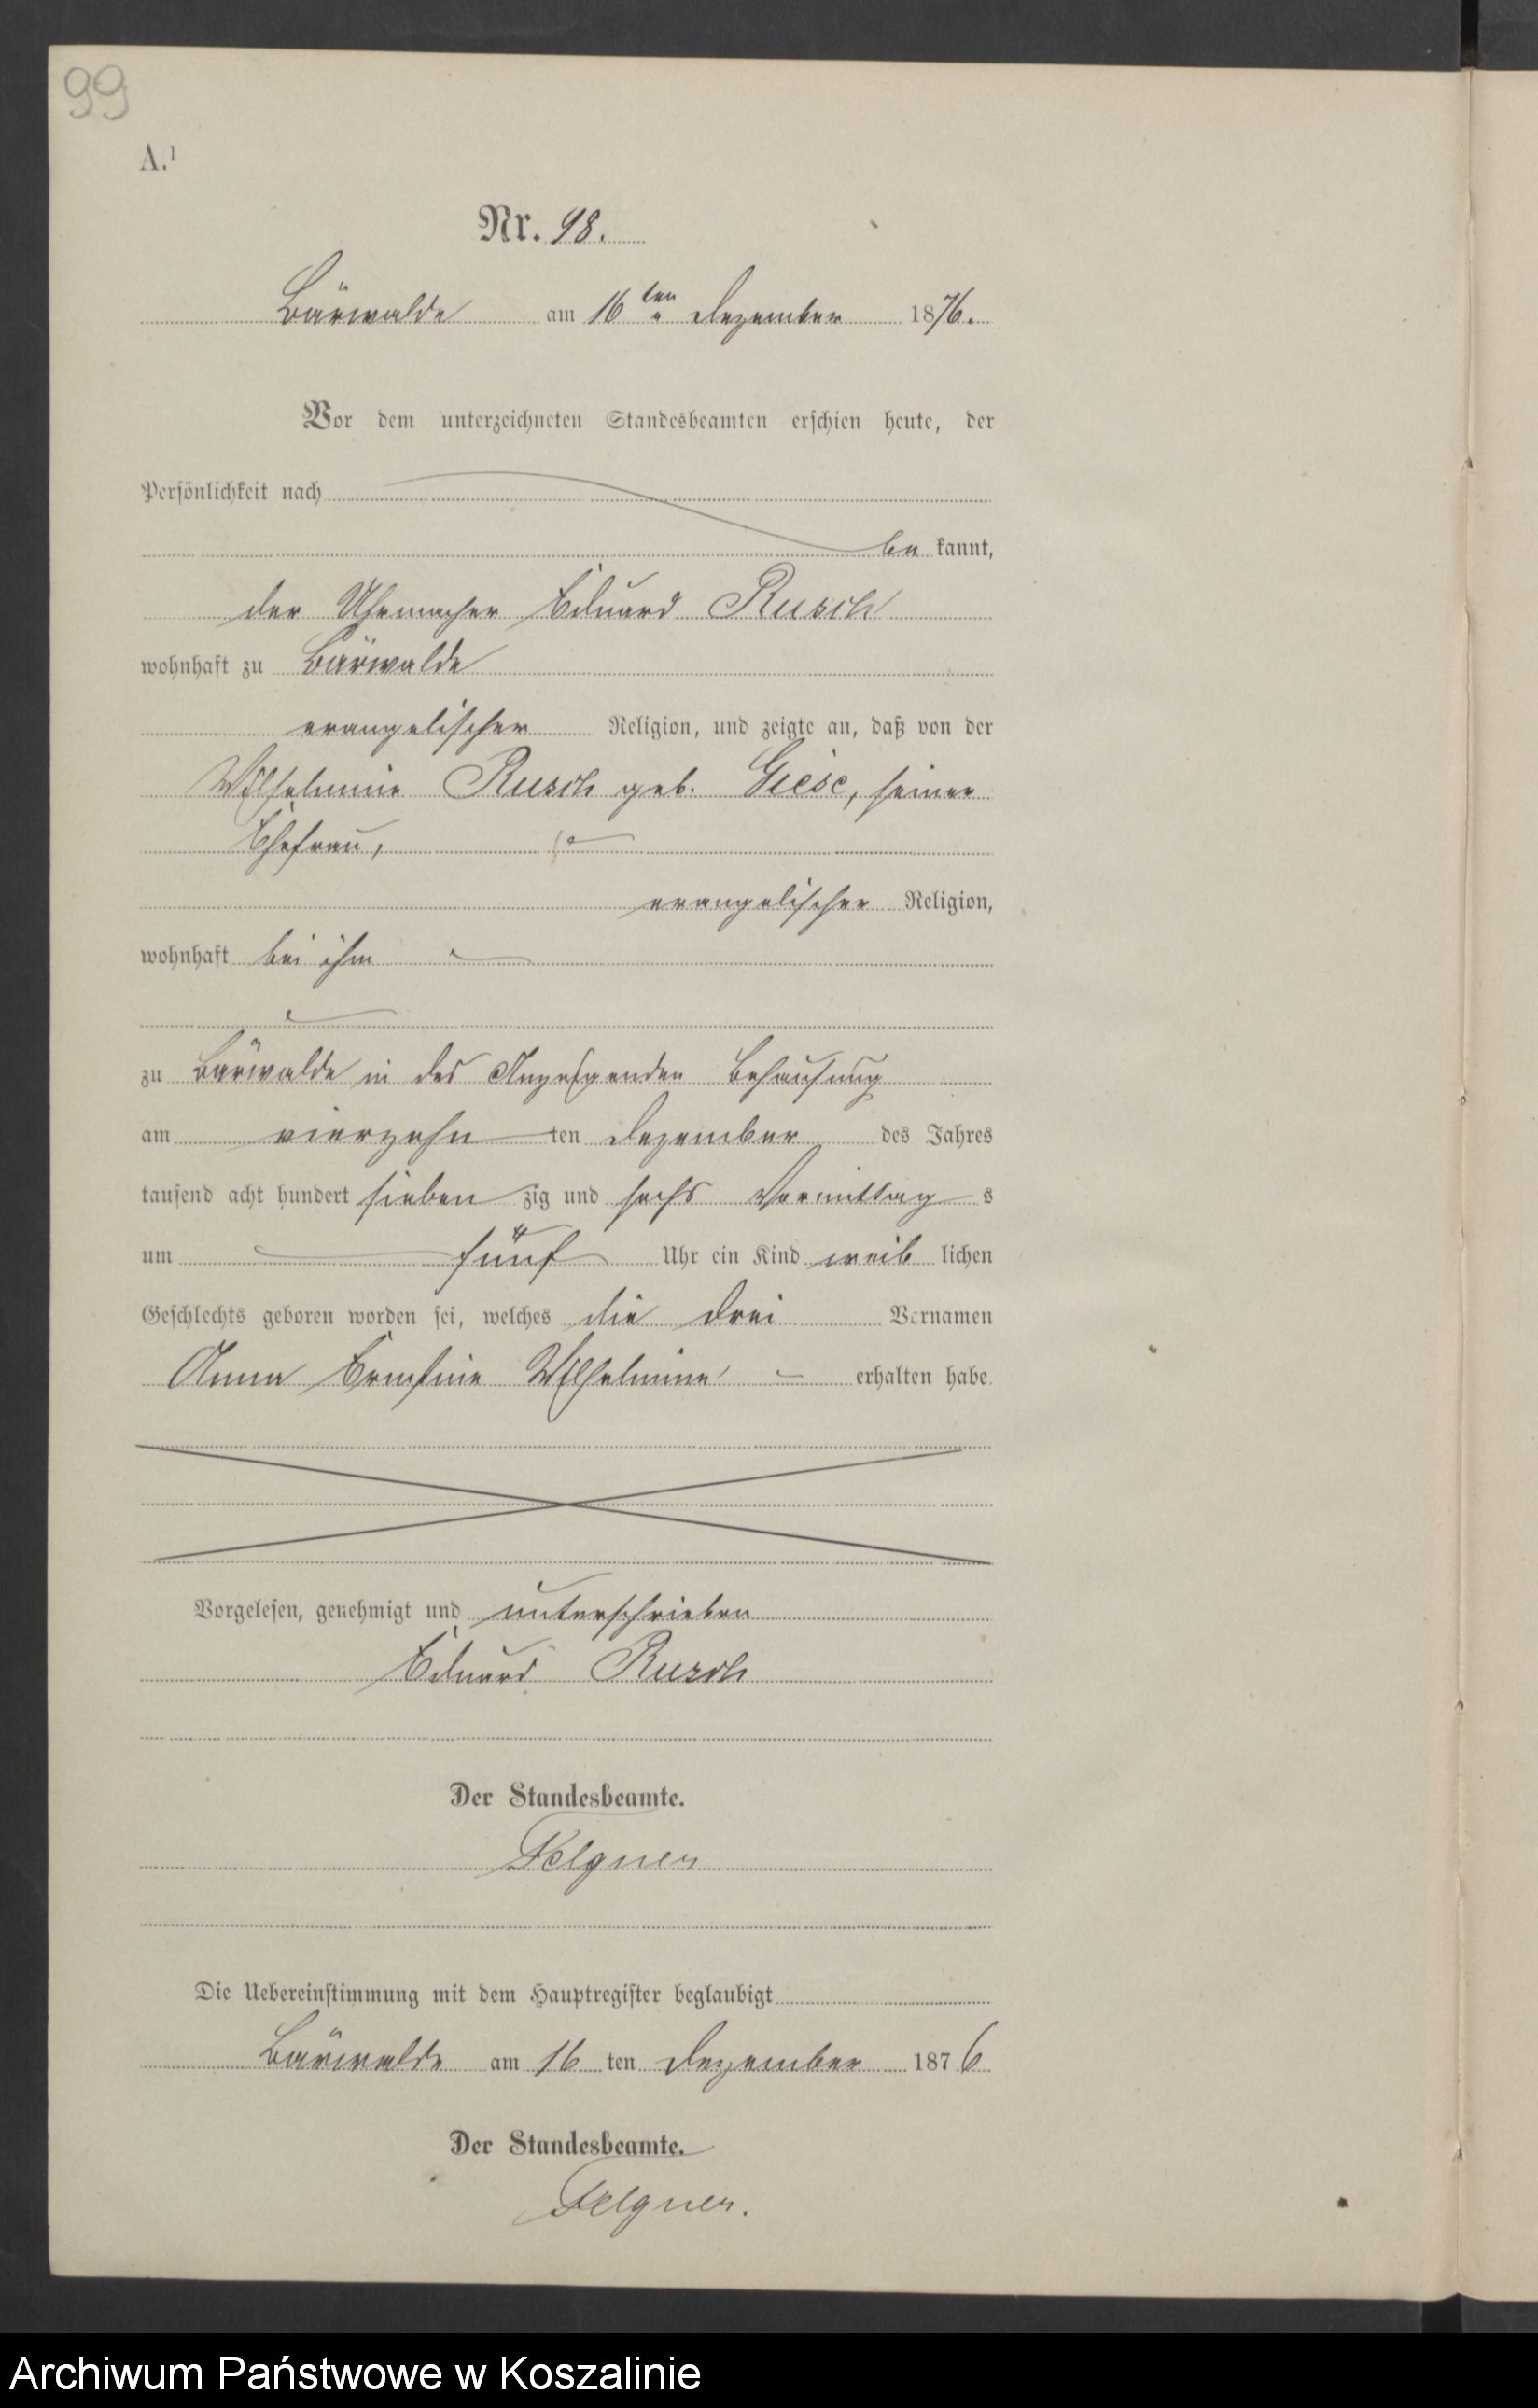 99
A.¹
Nr. 98.
Bärwalde am 16ten Dezember 1876.
Vor dem unterzeichneten Standesbeamten erschien heute, der
Persönlichkeit nach
be kannt,
der Uhrmacher Eduard Rusch
wohnhaft zu Bärwalde
evangelischer Religion, und zeigte an, daß von der
Wilhelmine Rusch geb. Giese, seiner
Ehefrau,
evangelischer Religion,
wohnhaft bei ihm
zu Bärwalde in des Anzeigenden Behausung
am vierzehn ten Dezember des Jahres
tausend acht hundert sieben zig und sechs Vormittag s
um fünf Uhr ein Kind weib lichen
Geschlechts geboren worden sei, welches die drei Vornamen
Anna Ernstine Wilhelmine erhalten habe.
Vorgelesen, genehmigt und unterschrieben
Eduard Rusch
Der Standesbeamte.
Felgner
Die Uebereinstimmung mit dem Hauptregister beglaubigt
Bärwalde am 16 ten Dezember 1876
Der Standesbeamte.
Felgner.
Archiwum Państwowe w Koszalinie